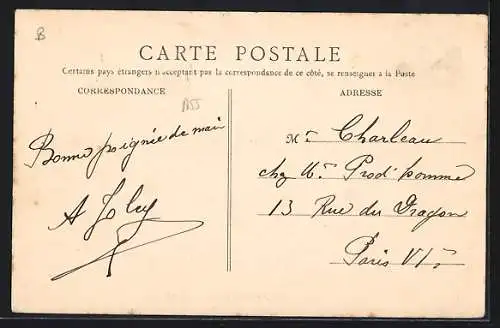 B
CARTE POSTALE
Certains pays étrangers n'acceptant pas la correspondance de ce côté, se renseigner à la Poste
CORRESPONDANCE
ADRESSE
Bonne poignée de main
Mr Charleau
chez Mr Prod'homme
13 Rue du Dragon
Paris VIe